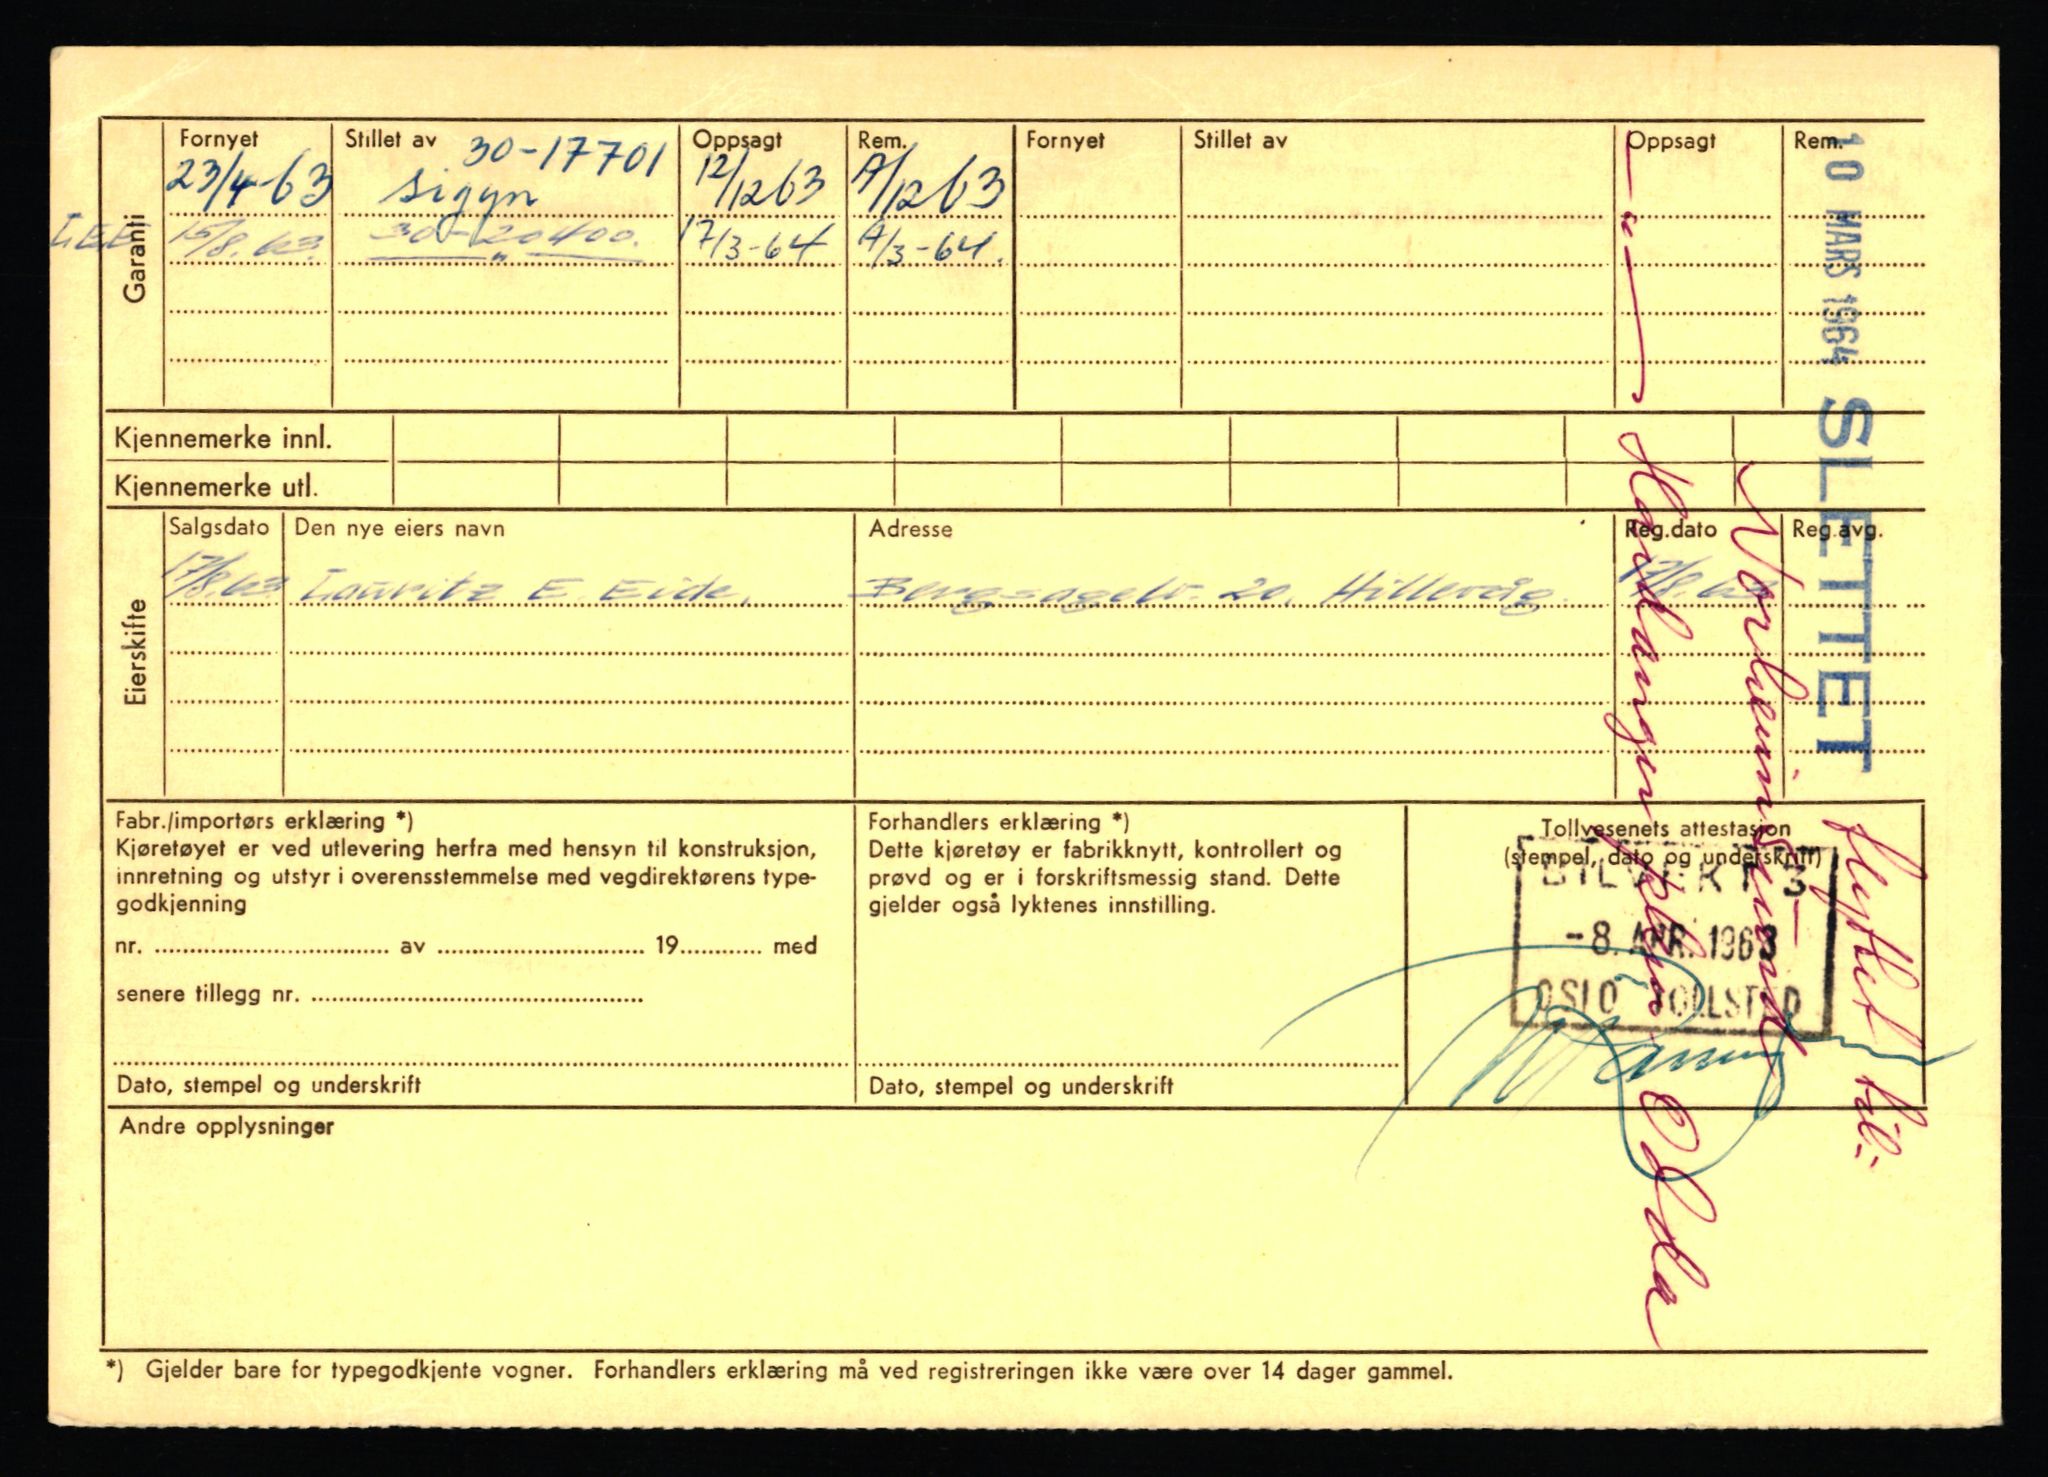 Garanti
Fornyet Stillet av Oppsagt Rem. Fornyet Stillet av Oppsagt Rem.
23/4-63 30-17701 12/12 63 A/12 63
sigyn
15/8.63. 30-20400. 17/3-64 A/3-64.
— " —
Kjennemerke innl.
Kjennemerke utl.
Eierskifte
Salgsdato Den nye eiers navn Adresse Reg.dato Reg.avg.
17/8.63 Lauritz E. Eide, Bergsagelv. 20, Hillevåg. 17/8.63
Fabr./importørs erklæring *)
Kjøretøyet er ved utlevering herfra med hensyn til konstruksjon,
innretning og utstyr i overensstemmelse med vegdirektørens type-
godkjenning
nr. av 19 med
senere tillegg nr.
Dato, stempel og underskrift
Forhandlers erklæring *)
Dette kjøretøy er fabrikknytt, kontrollert og
prøvd og er i forskriftsmessig stand. Dette
gjelder også lyktenes innstilling.
Dato, stempel og underskrift
Tollvesenets attestasjon
(stempel, dato og underskrift)
-8. APR. 1963
OSLO TOLLSTED
Andre opplysninger
*) Gjelder bare for typegodkjente vogner. Forhandlers erklæring må ved registreringen ikke være over 14 dager gammel.
10 MARS 1964 SLETTET
Flyttet til:
— " — Hardanger Odda